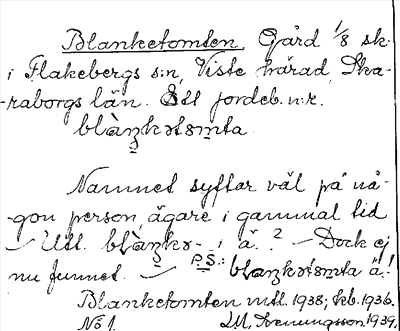 Blanketomten. Gård 1/8 sk.
i Flakebergs s:n, Viste härad, Ska-
-raborgs län. Ett jordeb. n:r.
blàŋkətsmta
Namnet syftar väl på nå-
-gon person, ägare i gammal tid
– Utt. blàŋkə- i ä.? – Dock ej
nu funnet. – P.S.: blaŋkətsmta ä.!
Blanketomten mtl. 1938; kb. 1936.
No 1. 1939.